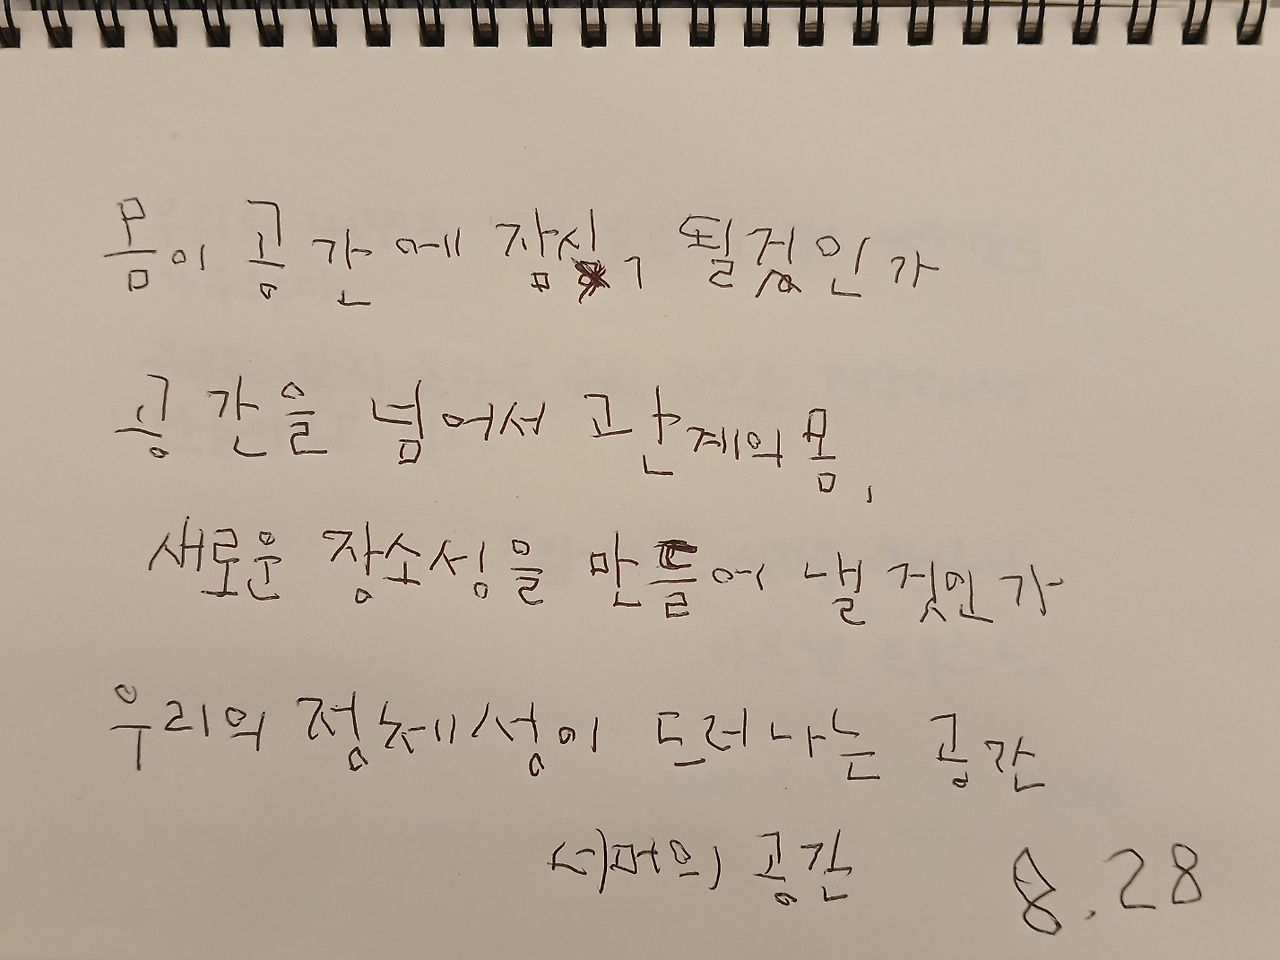 몸이 공간에 잠식 될것인가
공간을 넘어서 관계의 몸,
새로운 장소성을 만들어 낼 것인가
우리의 정체성이 드러나는 공간
공간 8.28